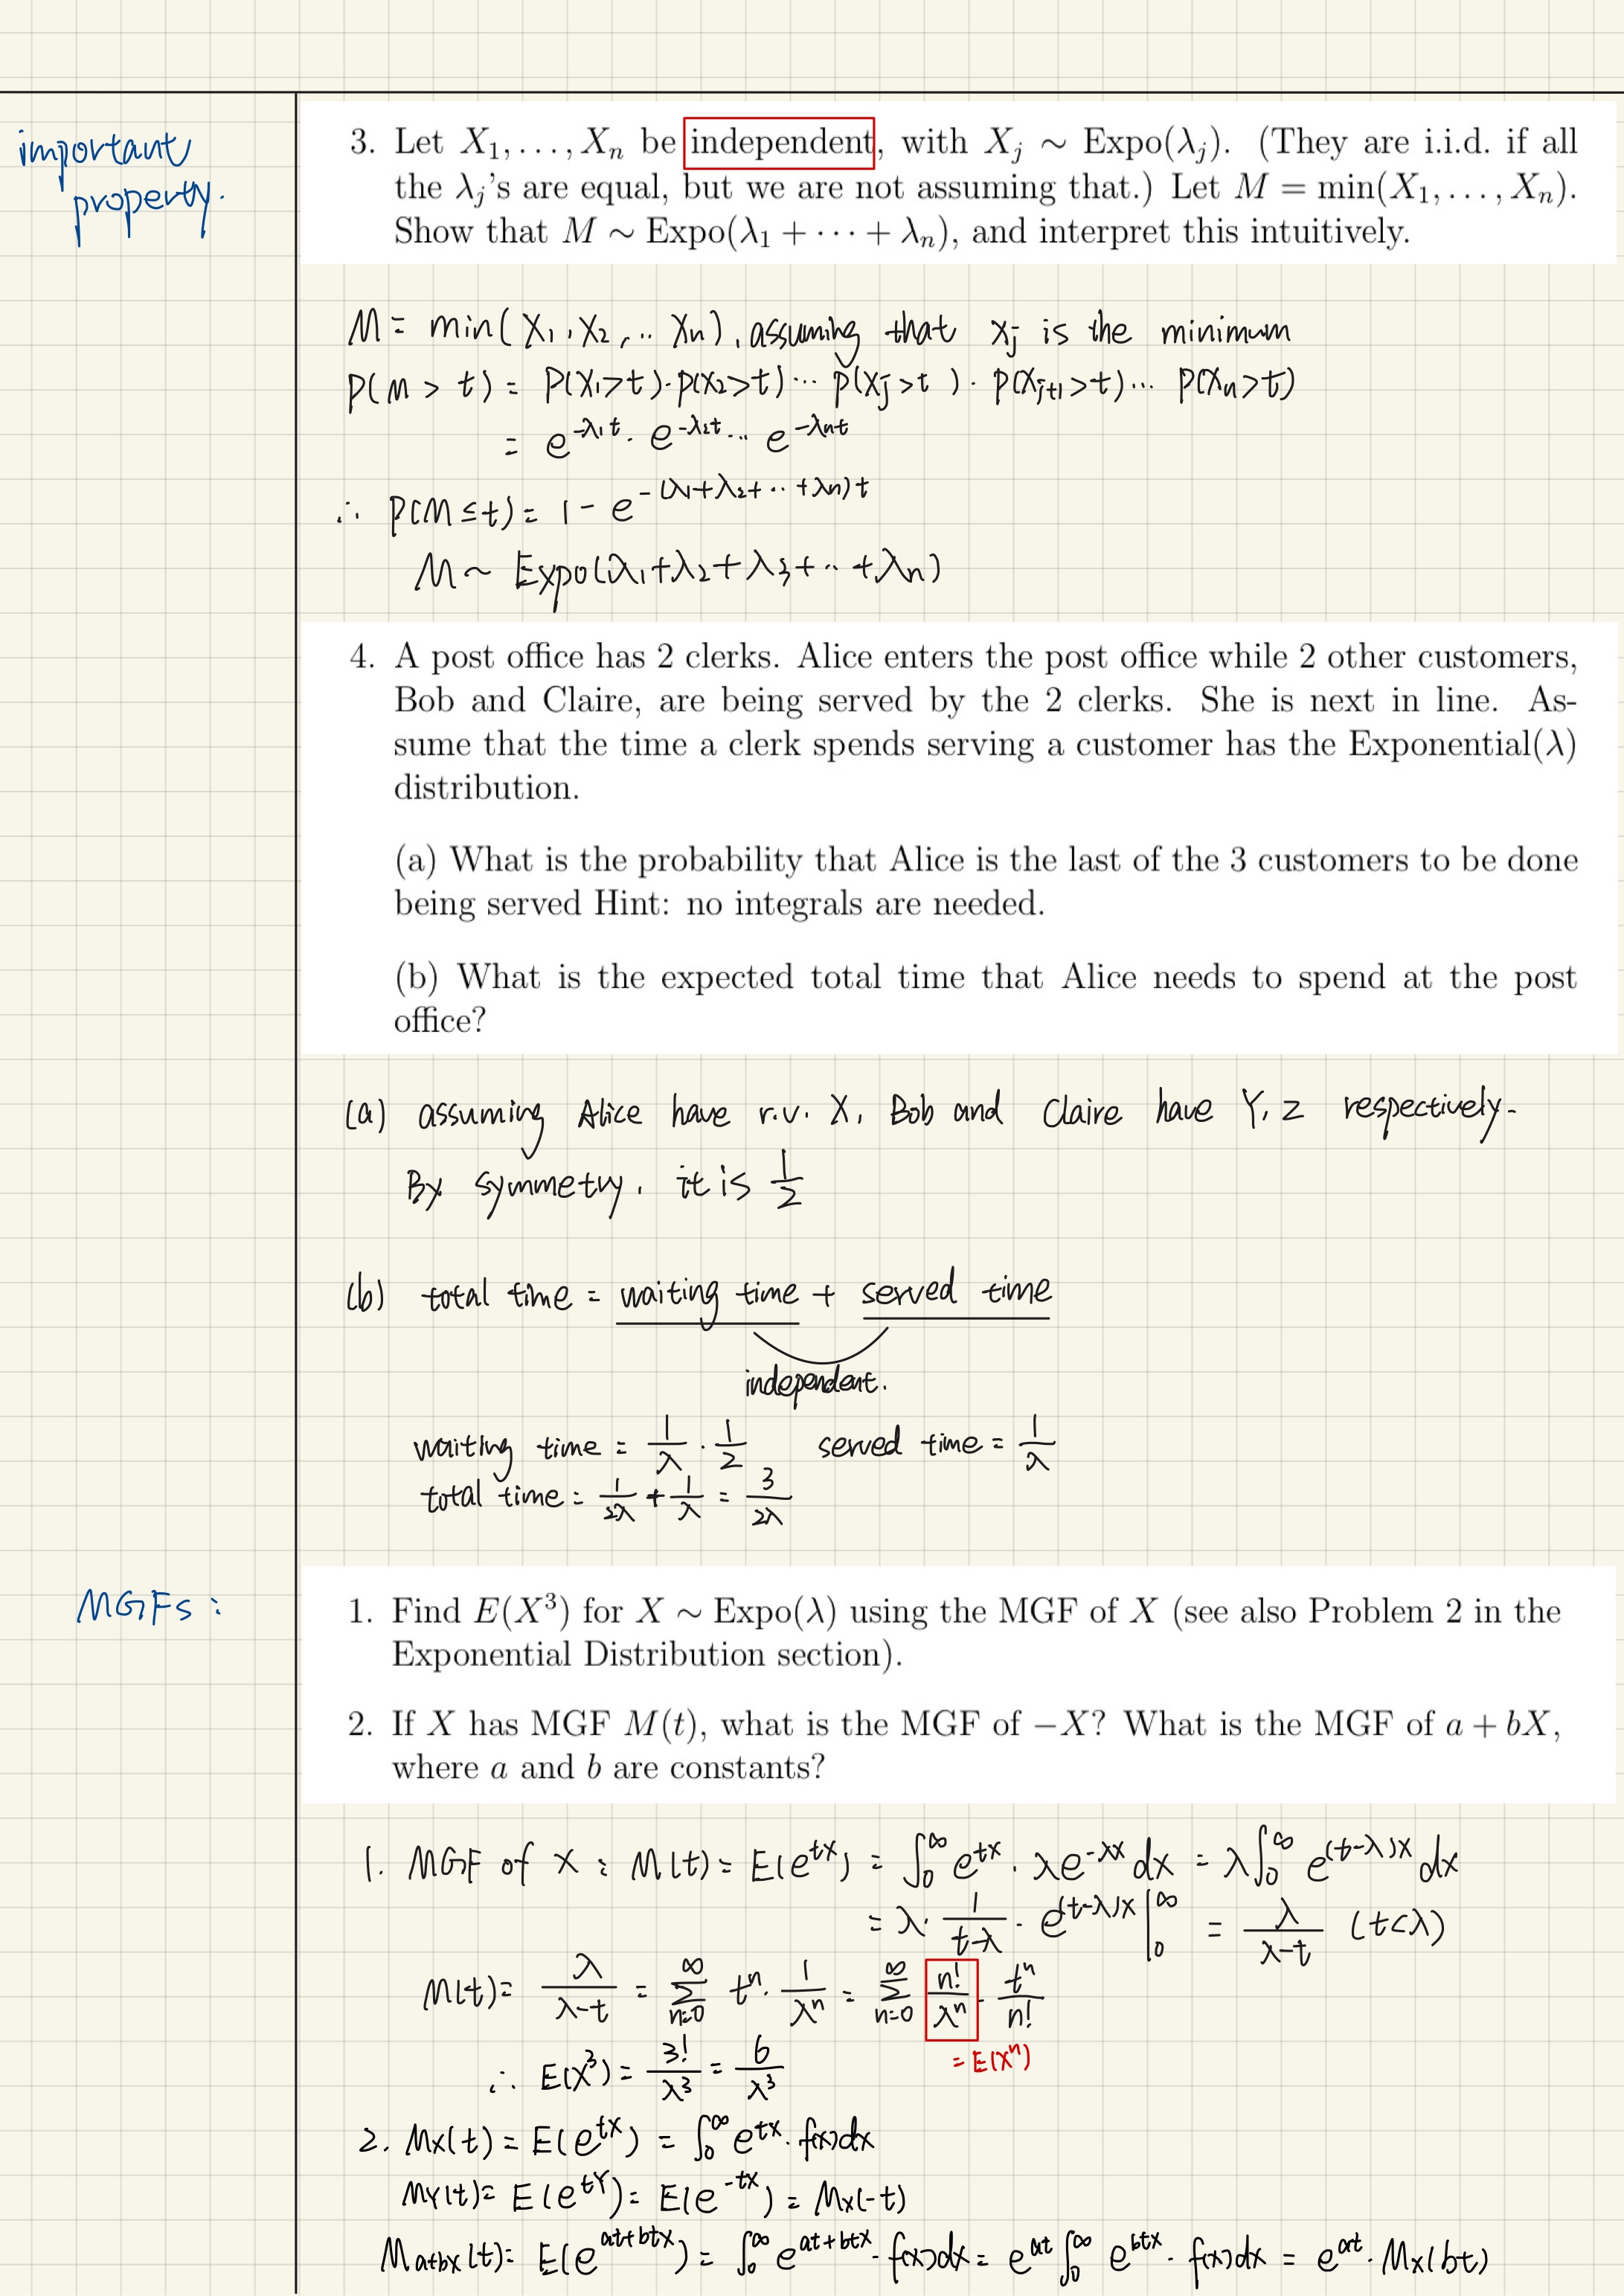 important
property.
3. Let X₁, . . . , Xₙ be independent, with Xⱼ ∼ Expo(λⱼ). (They are i.i.d. if all
the λⱼ's are equal, but we are not assuming that.) Let M = min(X₁, . . . , Xₙ).
Show that M ∼ Expo(λ₁ + · · · + λₙ), and interpret this intuitively.
M = min(X₁, X₂, ·· Xₙ), assuming that xⱼ is the minimum
P(M > t) = P(X₁>t)·P(X₂>t)··· P(Xⱼ>t)·P(Xⱼ₊₁>t)··· P(Xₙ>t)
= e^{-λ₁t}· e^{-λ₂t}··· e^{-λₙt}
∴ P(M ≤ t) = 1 - e^{-(λ₁+λ₂+··+λₙ)t}
M ~ Expo(λ₁+λ₂+λ₃+··+λₙ)
4. A post office has 2 clerks. Alice enters the post office while 2 other customers,
Bob and Claire, are being served by the 2 clerks. She is next in line. As-
sume that the time a clerk spends serving a customer has the Exponential(λ)
distribution.
(a) What is the probability that Alice is the last of the 3 customers to be done
being served Hint: no integrals are needed.
(b) What is the expected total time that Alice needs to spend at the post
office?
(a) assuming Alice have r.v. X, Bob and Claire have Y, Z respectively.
By symmetry, it is 1/2
(b) total time = waiting time + served time
independent.
waiting time = 1/λ · 1/2 served time = 1/λ
total time = 1/2λ + 1/λ = 3/2λ
MGFs :
1. Find E(X³) for X ∼ Expo(λ) using the MGF of X (see also Problem 2 in the
Exponential Distribution section).
2. If X has MGF M(t), what is the MGF of −X? What is the MGF of a + bX,
where a and b are constants?
1. MGF of X : M(t) = E(e^{tx}) = ∫₀^∞ e^{tx} · λe^{-λx} dx = λ∫₀^∞ e^{(t-λ)x} dx
= λ· 1/(t-λ) · e^{(t-λ)x} |₀^∞ = λ/(λ-t) (t<λ)
M(t) = λ/(λ-t) = ∑_{n=0}^∞ tⁿ · 1/λⁿ = ∑_{n=0}^∞ n!/λⁿ · tⁿ/n!
= E(Xⁿ)
∴ E(X³) = 3!/λ³ = 6/λ³
2. Mx(t) = E(e^{tx}) = ∫₀^∞ e^{tx} · f(x)dx
My(t) = E(e^{tY}) = E(e^{-tx}) = Mx(-t)
M_{a+bx}(t) = E(e^{at+btx}) = ∫₀^∞ e^{at+btx} · f(x)dx = e^{at} ∫₀^∞ e^{btx} · f(x)dx = e^{at} · Mx(bt)